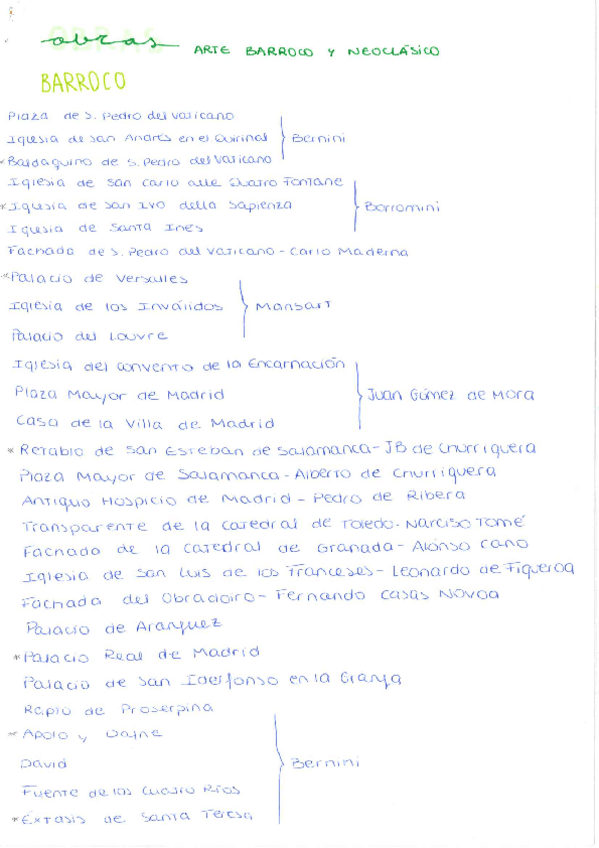 obras ARTE BARROCO Y NEOCLÁSICO
BARROCO
Plaza de S. Pedro del Vaticano
Iglesia de San Andrés en el Quirinal } Bernini
*Baldaquino de S. Pedro del Vaticano
Iglesia de San Carlo alle Quatro Fontane
*Iglesia de San Ivo della Sapienza } Borromini
Iglesia de Santa Inés
Fachada de S. Pedro del Vaticano - Carlo Maderna
*Palacio de Versalles
Iglesia de los Inválidos } Mansart
Palacio del Louvre
Iglesia del convento de la Encarnación
Plaza Mayor de Madrid } Juan Gómez de Mora
Casa de la Villa de Madrid
*Retablo de San Esteban de Salamanca - JB de Churriguera
Plaza Mayor de Salamanca - Alberto de Churriguera
Antiguo Hospicio de Madrid - Pedro de Ribera
Transparente de la catedral de Toledo - Narciso Tomé
Fachada de la catedral de Granada - Alonso Cano
Iglesia de San Luis de los Franceses - Leonardo de Figueroa
Fachada del Obradoiro - Fernando Casas Novoa
Palacio de Aranjuez
*Palacio Real de Madrid
Palacio de San Ildefonso en la Granja
Rapto de Proserpina
*Apolo y Dafne
David } Bernini
Fuente de los Cuatro Ríos
*Éxtasis de Santa Teresa